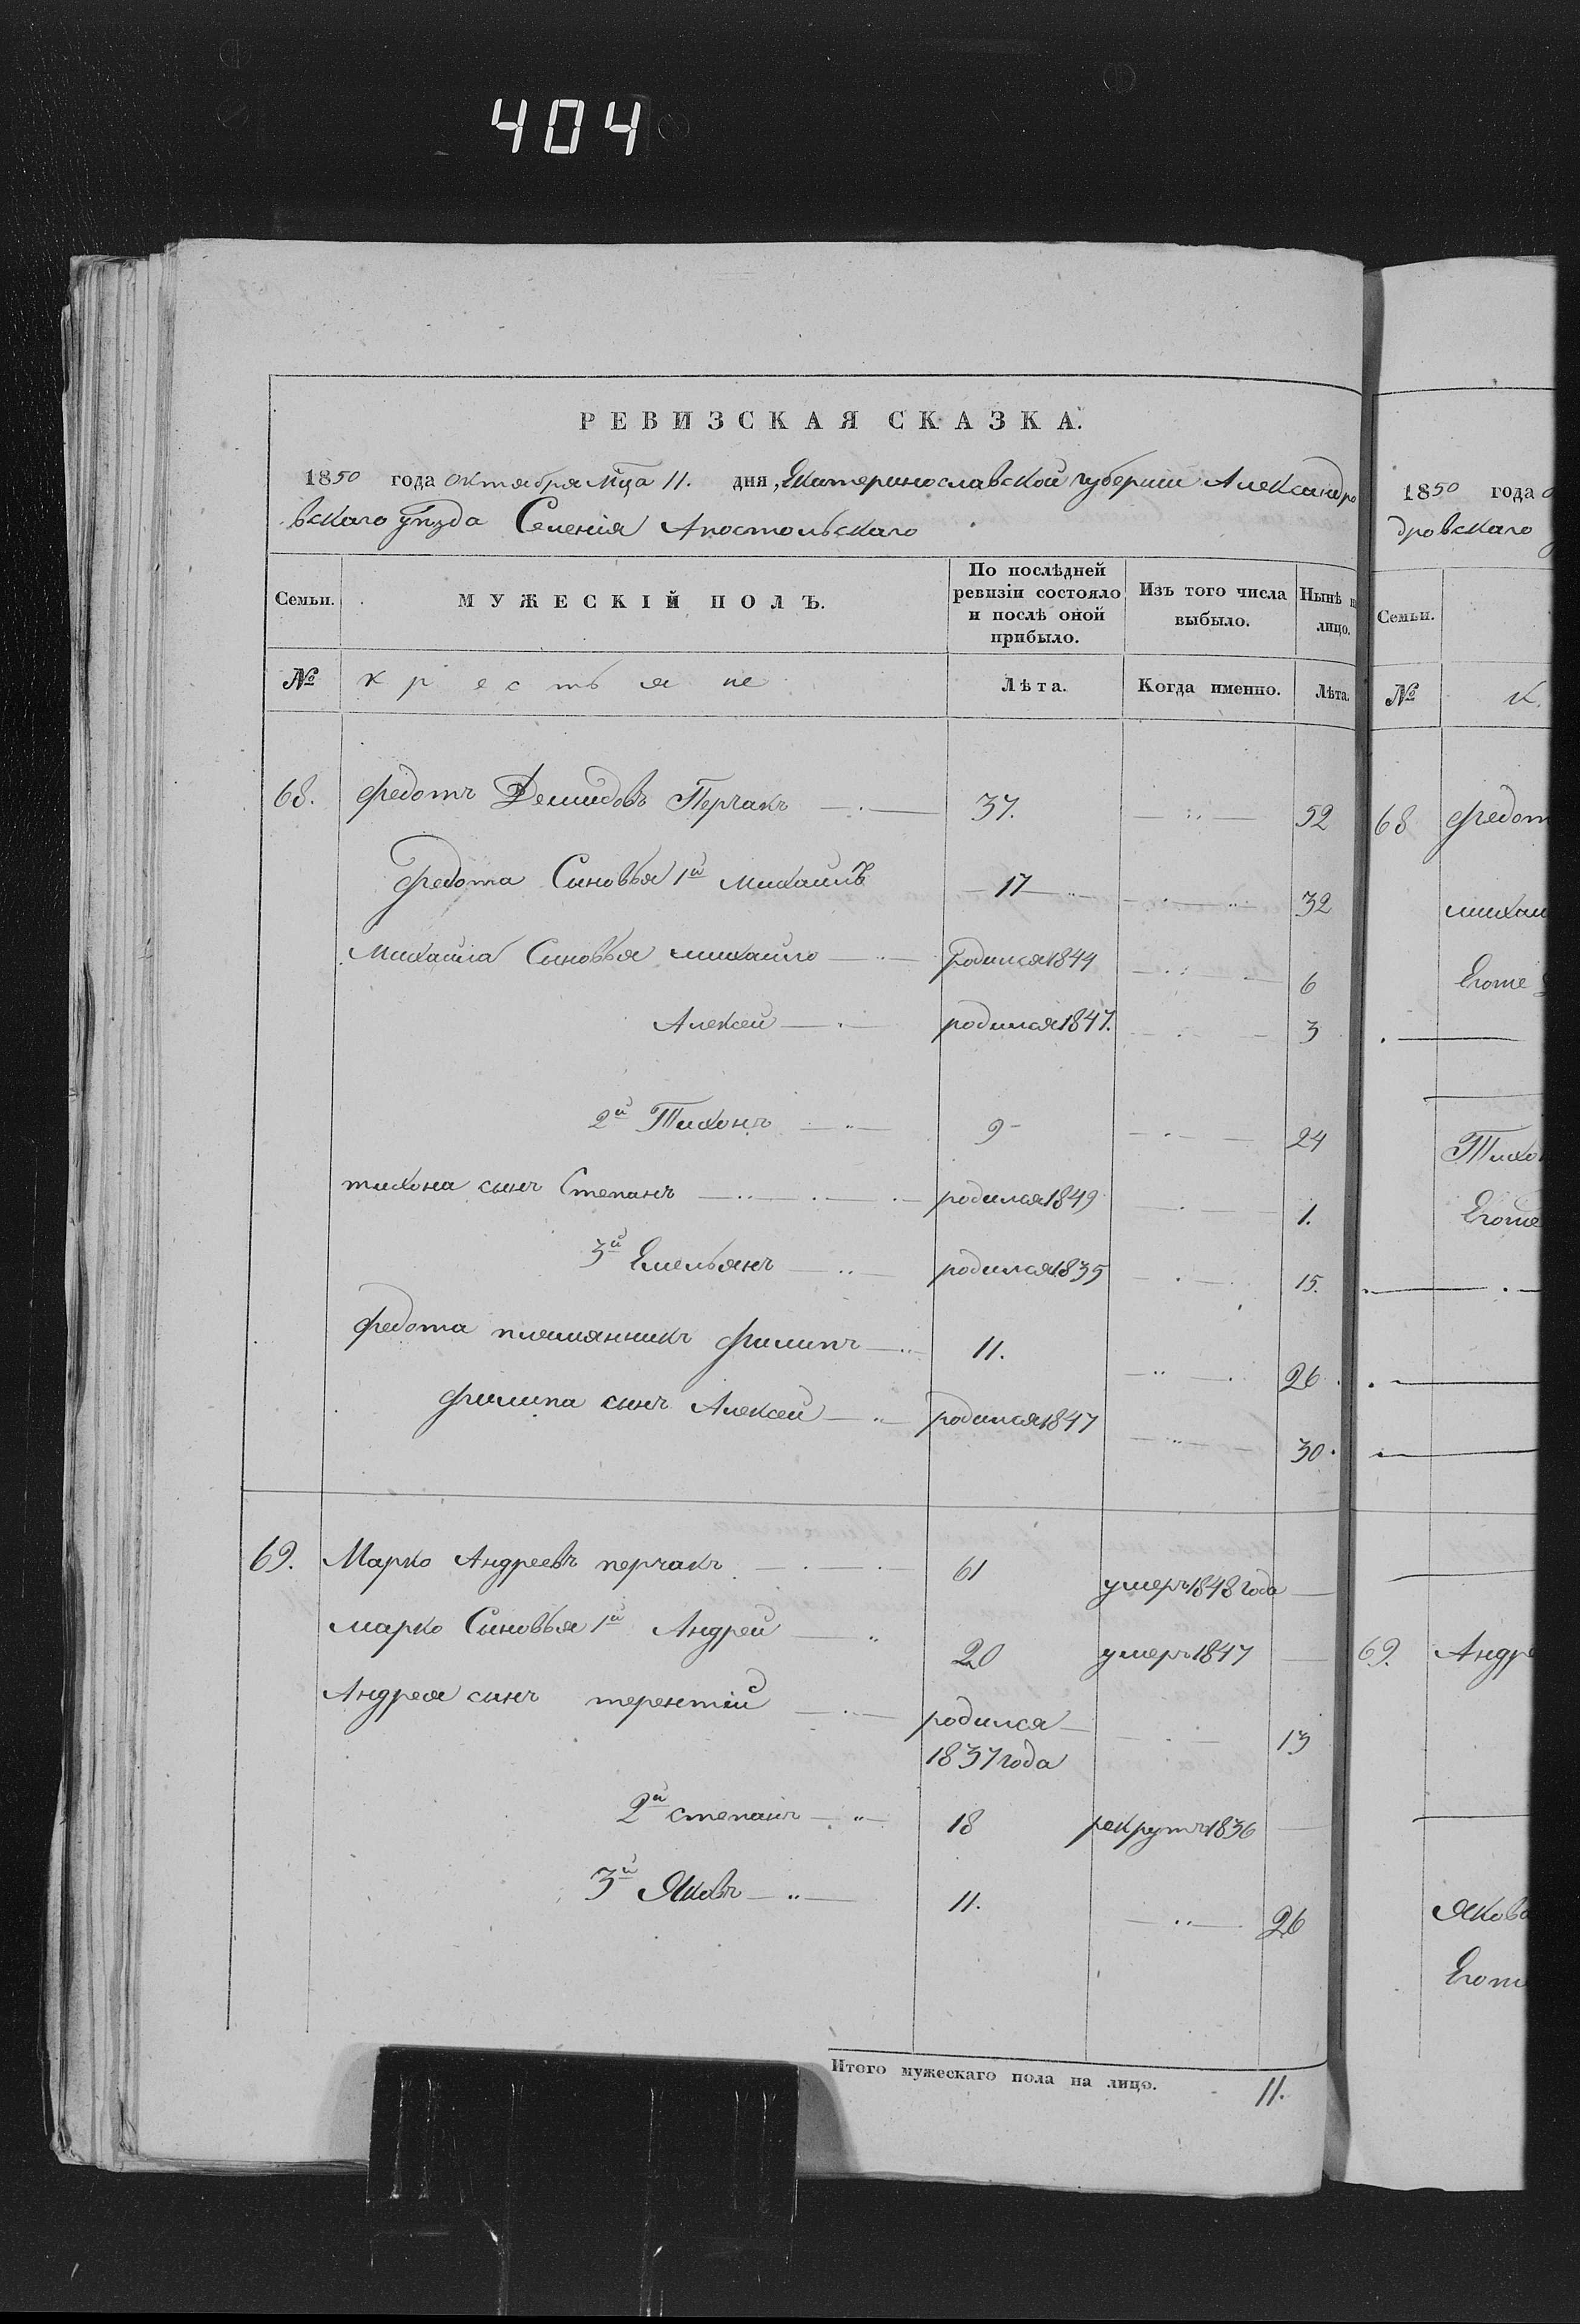 404
РЕВИЗСКАЯ СКАЗКА.
1850 года октября мца 11. дня, Екатеринославской губернии Александро
вскаго уѣзда Селенія Апостольскаго
Семьи. МУЖЕСКІЙ ПОЛЪ. По послѣдней ревизіи состояло и послѣ оной прибыло. Изъ того числа выбыло. Нынѣ на лицо.
№ крестьяне Лѣта. Когда именно. Лѣта.
68. Федотъ Демидовъ Перчакъ 37. 52
Федота Синовья 1й Михаилъ 17 32
Михаила Синовья михайло родился 1844 6
Алексей родился 1847. 3
2й Тихонъ 9 24
тихона сынъ Степанъ родился 1849 1.
3й Емельянъ родился 1835 15.
Федота племянникъ Филипъ 11. 26
Филипа сынъ Алексей родился 1847 30.
69. Марко Андреевъ перчакъ 61 умеръ 1848 года
марко Синовья 1й Андрей 20 умеръ 1847
Андрея сынъ терентій родился 1837 года 13
2й степанъ 18 рекрутъ 1836
3й Яковъ 11. 26
Итого мужескаго пола на лицо. 11.
1850 года
дровскаго
Семьи.
№ К
68 Федот
михаи
Егоже
Тихо
Егоже
69. Андре
Якова
Егож